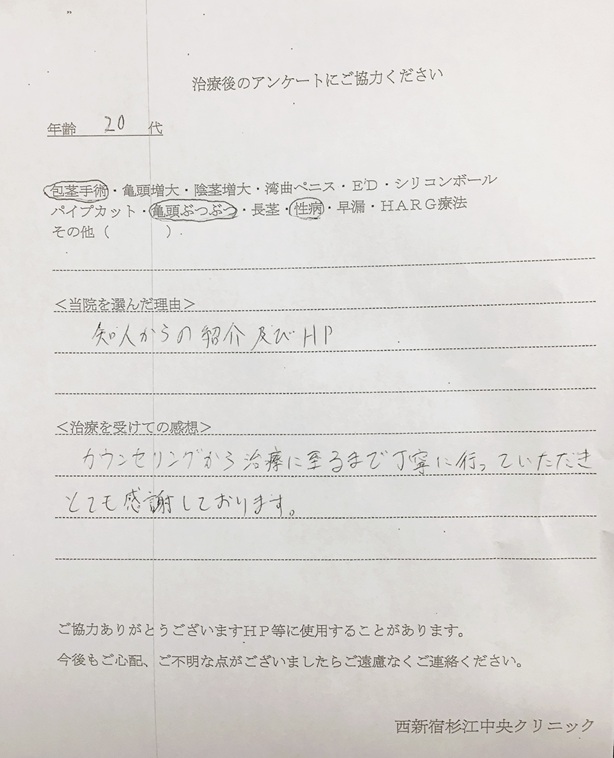 治療後のアンケートにご協力ください
年齢 20 代
包茎手術・亀頭増大・陰茎増大・湾曲ペニス・ED・シリコンボール
パイプカット・亀頭ぶつぶつ・長茎・性病・早漏・HARG療法
その他( )
<当院を選んだ理由>
知人からの紹介及びHP
<治療を受けての感想>
カウンセリングから治療に至るまで丁寧に行っていただき
とても感謝しております。
ご協力ありがとうございますHP等に使用することがあります。
今後もご心配、ご不明な点がございましたらご遠慮なくご連絡ください。
西新宿杉江中央クリニック